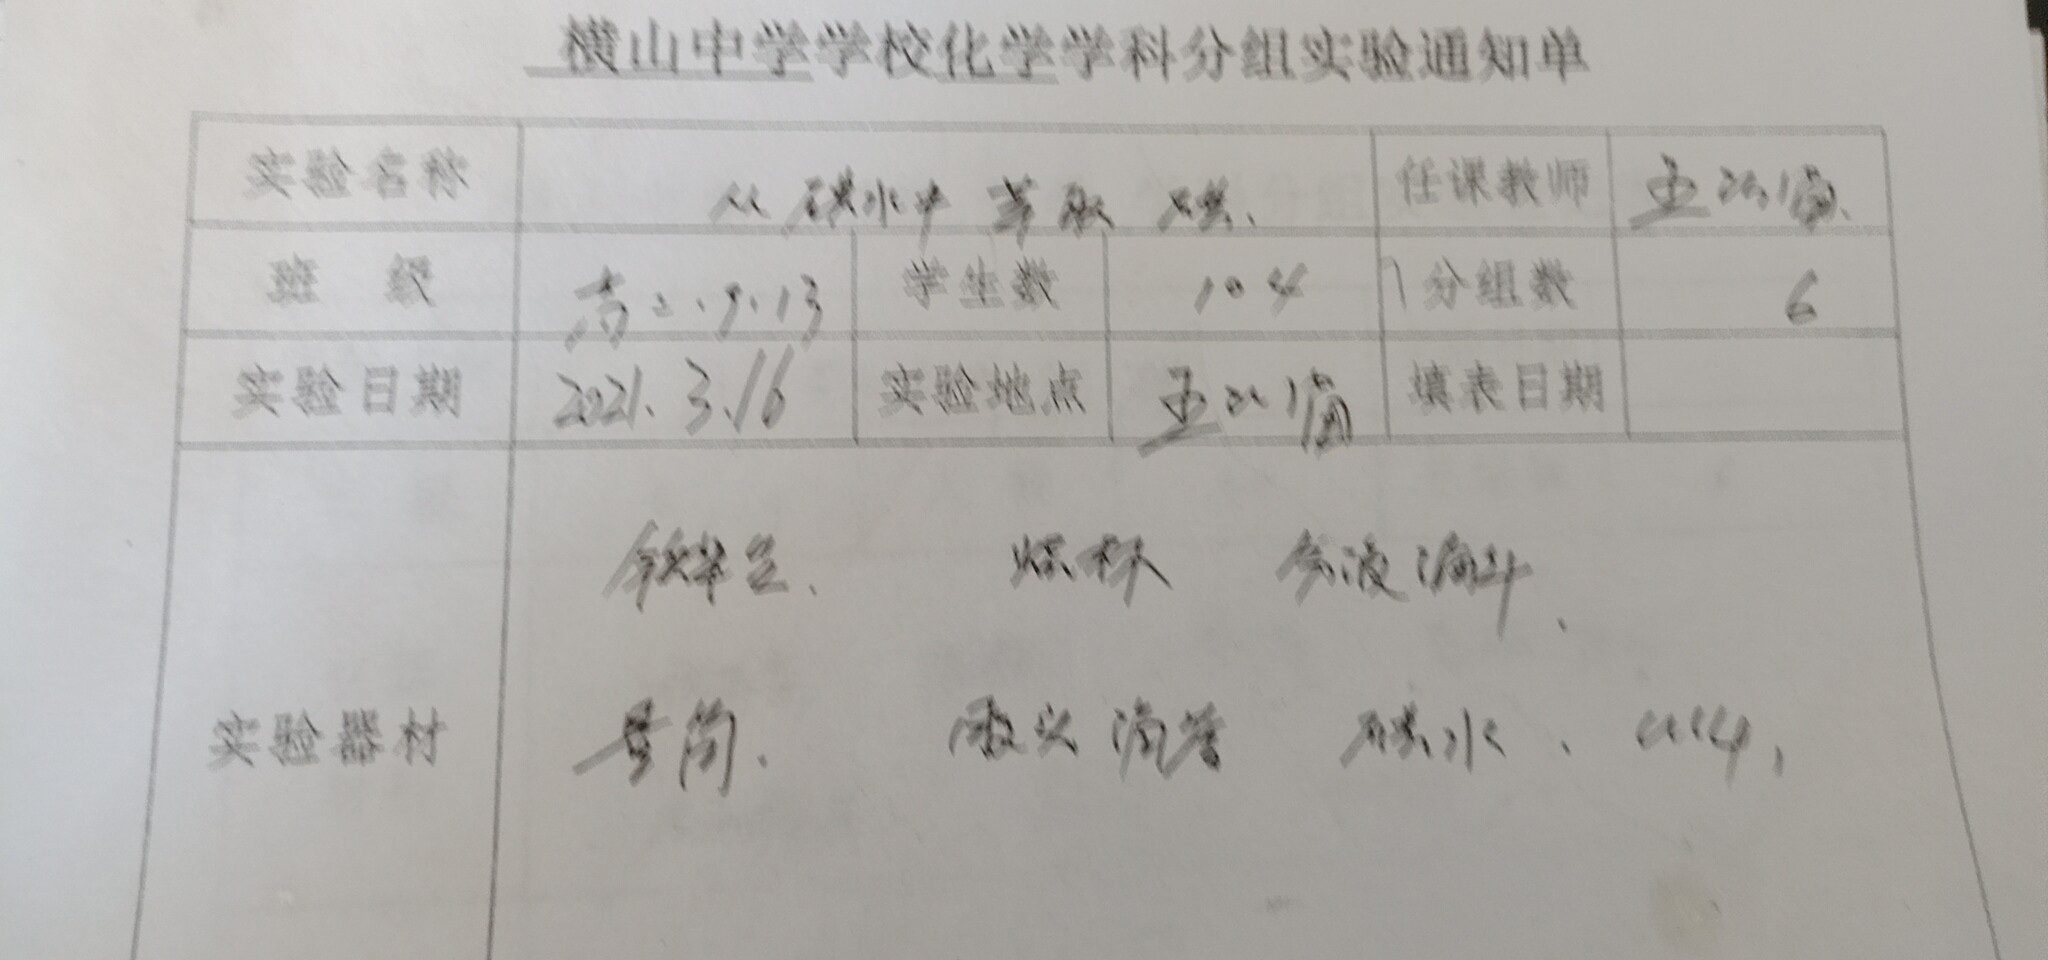 横山中学学校化学学科分组实验通知单
实验名称 从碘水中萃取碘. 任课教师
班 级 高二.9.13 学生数 104 分组数 6
实验日期 2021.3.16 实验地点 填表日期
铁架台、 烧杯 分液漏斗、
实验器材 量筒. 胶头滴管 碘水、CCl4,